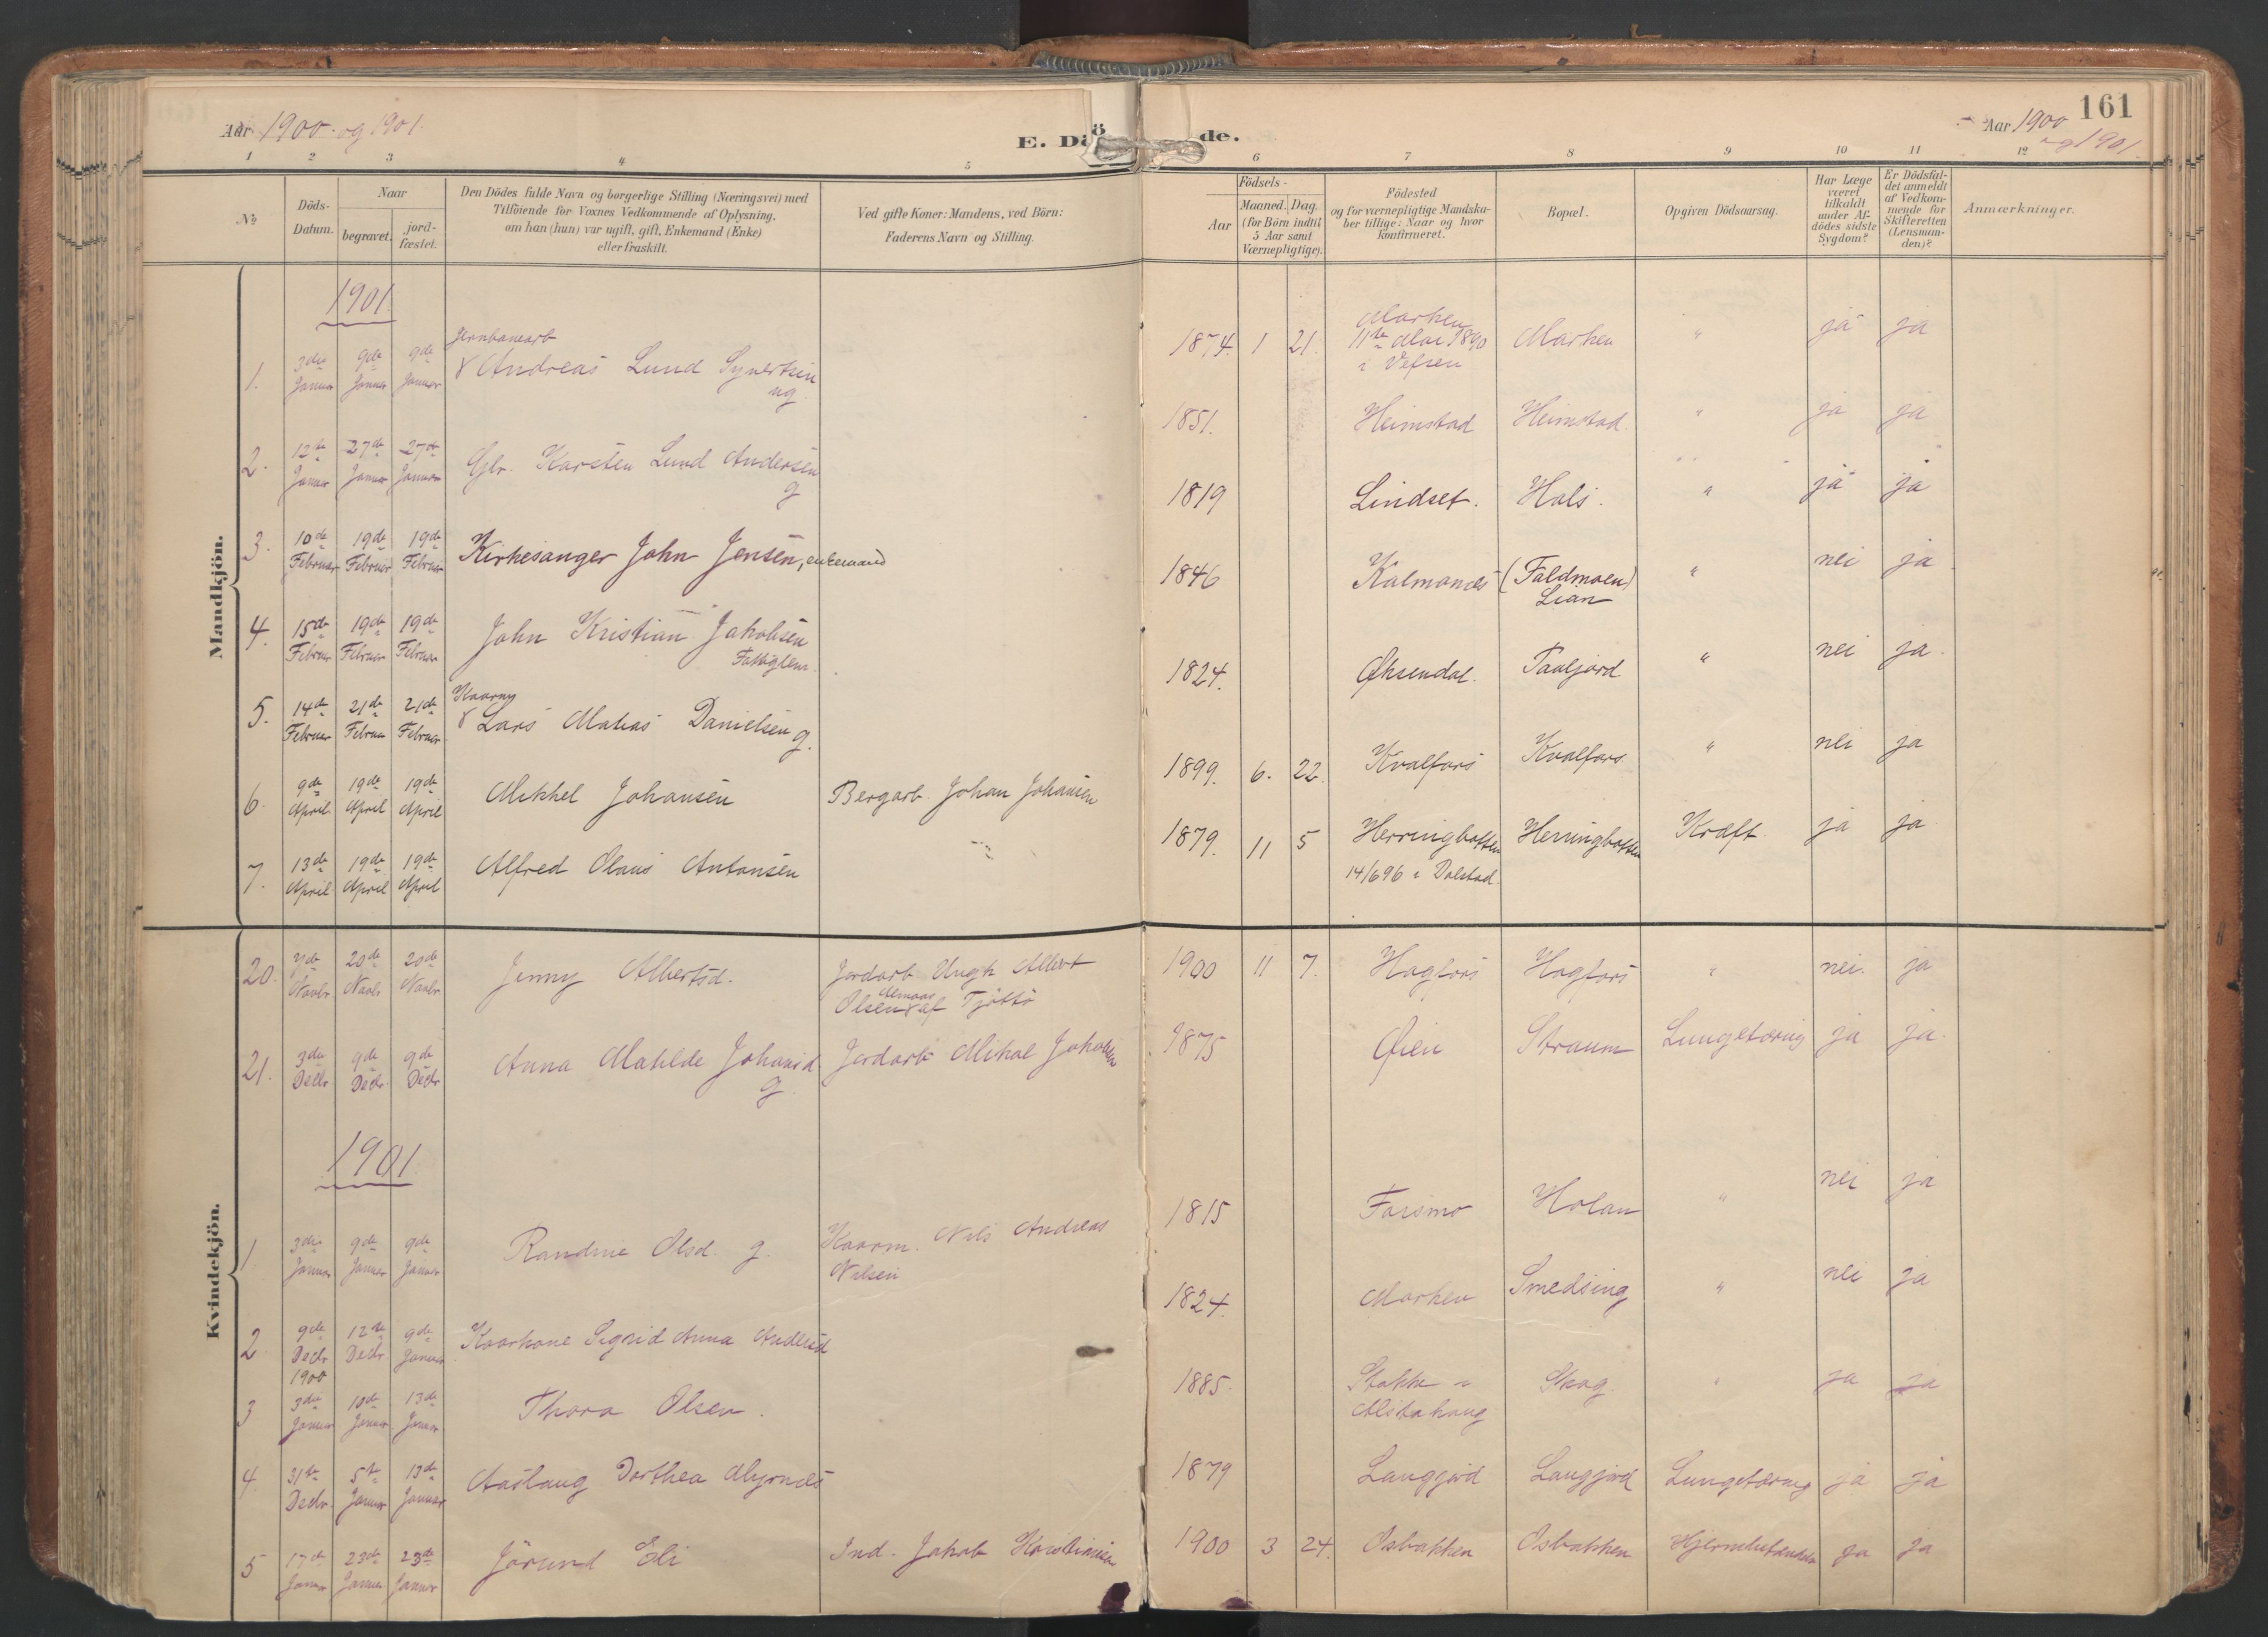 Aar 1900. og 1901.
E. Dö de.
Aar 1900
og 1901.
161
1 2 3 4 5 6 7 8 9 10 11 12
No
Döds-
Datum.
Naar
begravet.
jord-
fæstet.
Den Dödes fulde Navn og borgerlige Stilling (Næringsvei) med
Tilföiende for Voxnes Vedkommende af Oplysning,
om han (hun) var ugift, gift, Enkemand (Enke)
eller fraskilt.
Ved gifte Koner: Mandens, ved Börn:
Faderens Navn og Stilling.
Födsels-
Aar
Maaned. Dag.
(for Börn indtil
5 Aar samt
Værnepligtige).
Födested
og for værnepligtige Mandska-
ber tillige: Naar og hvor
konfirmeret.
Bopæl.
Opgiven Dödsaarsag.
Har Læge
været
tilkaldt
under Af-
dödes sidste
Sygdom?
Er Dödsfal-
det anmeldt
af Vedkom-
mende for
Skifteretten
(Lensman-
den)?
Anmærkninger.
Mandkjön.
1901
Jernbanearb
1. 3die Januar 9de Januar 9de Januar Andreas Lund Syvertsen ug. 1874. 1 21. Marken 11te Mai 1890 i Vefsen Marken " ja ja
2. 12te Januar 27de Januar 27de Januar Gbr. Karsten Lund Andersen g 1851. Heimstad Heimstad. " ja ja
3. 10de Februar 19de Februar 19de Februar Kirkesanger John Jensen, enkemand 1819 Lindset. Hals. " ja ja
4. 15de Februar 19de Februar 19de Februar John Kristian Jakobsen Fattiglem. 1846 Kalmonæs (Faldmoen) Lian " nei ja
5. 14de Februar 21de Februar 21de Februar Lars Matias Danielsen g. 1824. Øksendal. " nei ja.
6. 9de April. 19de April 19de April Mikkel Johansen Bergarb. Johan Johansen 1899. 6. 22. Kvalfors Kvalfors " nei ja
7. 13de April 19de April 19de April Alfred Olaus Antonsen 1879. 11 5 Herringbotten 14/6 96 i Dolstad. Herringbotten Kræft. ja ja
Kvindekjön.
20. 7de Novbr 20de Novbr 20de Novbr Jenny Albertsd. Jordarb. Ungk Albert Olsen af Tjøttø 1900 11 7. Hagfors Hagfors " nei. ja
21. 3die Decbr 9de Decbr. 9de Decbr Anna Matilde Johansd. g Jordarb. Mikal 1875 Øien Straum Lungetæring ja ja.
1901
1 3die Januar 9de Januar 9de Januar Randine Olsd. g. Kaarm. Nils Andreas Nilsen 1815 Farsmo Holan " nei ja
2 9de Decbr 1900 12te Decbr 9de Januar Kaarkone Sigrid Anna Andersd 1824. Marken Smedseng " nei ja
3 3die Januar 10de Januar 13de Januar Thora Olsen. 1885. Stokke i Alstahaug Skog. " ja ja
4. 31te Decbr. 5te Januar 13de Januar Aaslaug Dorthea Myrnes 1879 Langjord Langjord Lungetæring ja ja
5 17de Januar 23de Januar 23de Januar Jörund Eli Ind. Jakob Kristiansen 1900 3 24. Osbakken Osbakken ja ja